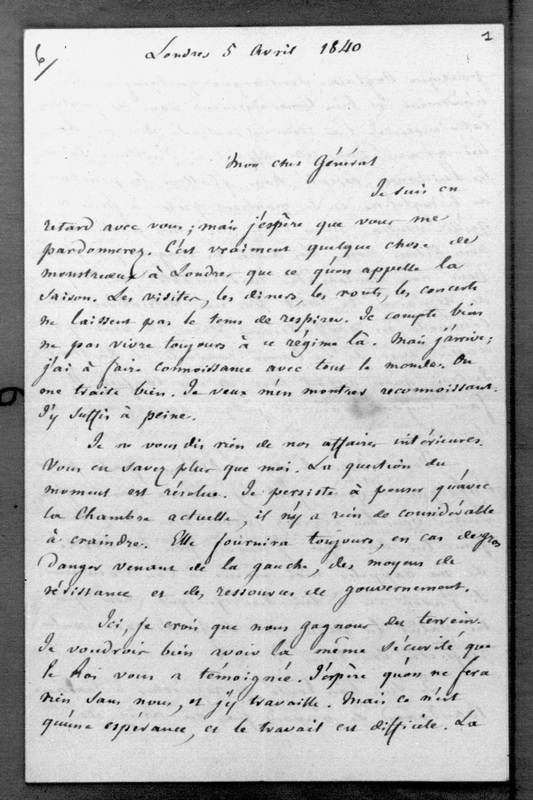 6/
1
Londres 5 Avril 1840
Mon cher Général
Je suis en
retard avec vous ; mais j'espère que vous me
pardonnerez. C'est vraiment quelque chose de
monstrueux à Londres que ce qu'on appelle la
saison. Les visites, les diners, les routs, les concerts
ne laissent pas le tems de respirer. Je compte bien
ne pas vivre toujours à ce régime là. Mais j'arrive ;
j'ai à faire connoissance avec tout le monde. On
me traite bien. Je veux m'en montrer reconnoissant.
J'y suffis à peine.
Je ne vous dis rien de nos affaires intérieures.
Vous en savez plus que moi. La question du
moment est résolue. Je persiste à penser qu'avec
la Chambre actuelle, il n'y a rien de considérable
à craindre. Elle fournira toujours, en cas de gros
danger venant de la gauche, des moyens de
résistance et des ressources de gouvernement.
Ici, je crois que nous gagnons du terrein.
Je voudrois bien avoir la même sécurité que
le Roi vous a témoignée. J'espère qu'on ne fera
rien sans nous, et j'y travaille. Mais ce n'est
qu'une espérance, et le travail est difficile. La